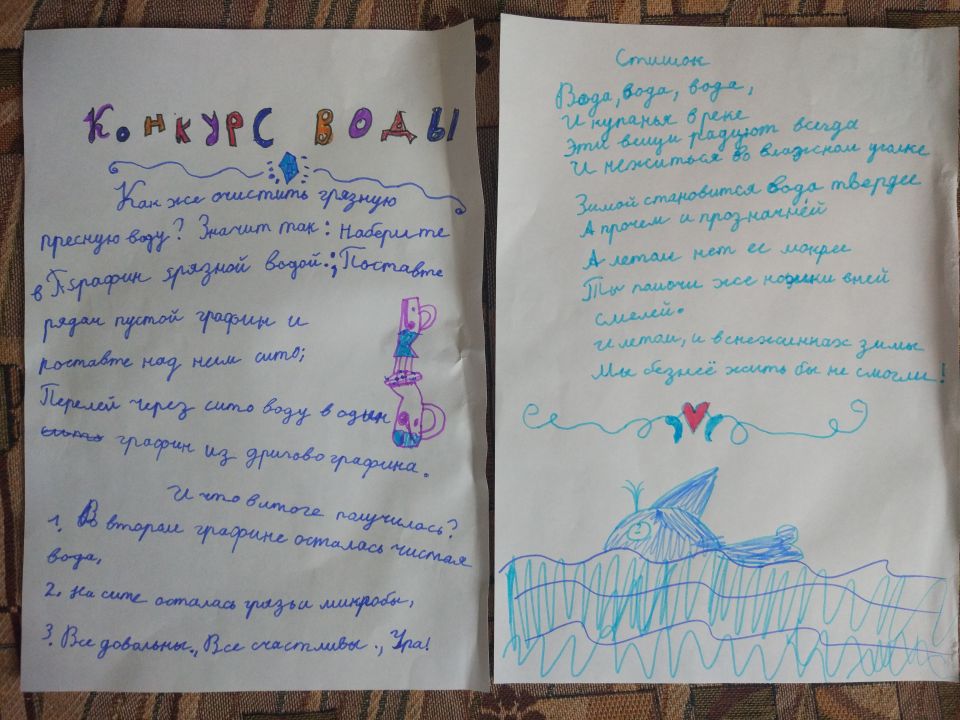 Конкурс воды
Как же очистить грязную
пресную воду? Значит так: Наберите
в графин грязной водой.; Поставте
рядам пустой графин и
поставте над ним сито;
Перелей через сито воду в один
графин из дригово графина.
И что витоге палучилась?
1. В втарам графине осталась чистая
вода,
2. На сите осталась грязь и микробы,
3. Все довальны., Все счастливы., Ура!
Стишок
Вода, вода, вода,
И купанья в реке
Эти вещи радуют всегда
И нежиться во влажном уголке
Зимой становится вода твердее
А прочем и прозначней
А летам нет ее мокрее
Ты памочи же ножики вней
смелей.
И летам, и вснежинках зимы
Мы безнеё жить бы не смогли!